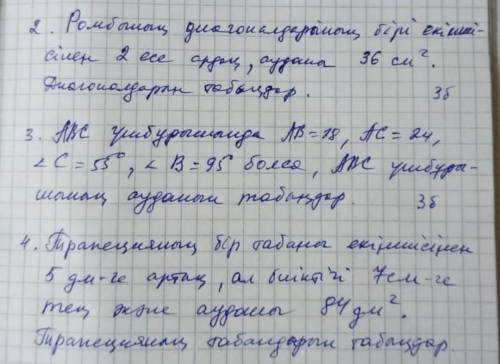 2. Ромбының диагональдарының бірі екінші-
сінен 2 есе артық, ауданы 36 см².
Диагональдарын табыңдар. 3б
3. АВС үшбұрышында АВ=18, АС=24,
∠C=55°, ∠B=95° болса, АВС үшбұры-
шының ауданын табыңдар. 3б
4. Трапецияның бір табаны екіншісінен
5 дм-ге артық, ал биіктігі 7см-ге
тең және ауданы 84 дм².
Трапецияның табандарын табыңдар.